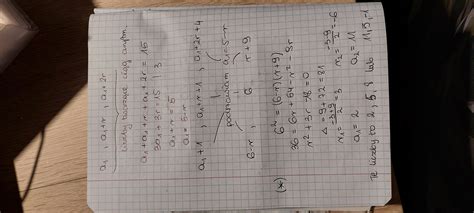 a₁, a₁+r, a₁+2r
liczby tworzące ciąg arytm.
a₁+a₁+r+a₁+2r=15
3a₁+3r=15 |:3
a₁+r=5
a₁=5-r
a₁+1, a₁+r+1, a₁+2r+4
podstawiam a₁=5-r
6-r, 6, r+9
(*) 6²=(6-r)(r+9)
36=6r+54-r²-9r
r²+3r-18=0
Δ=9+72=81
r₁=(-3+9)/2=3 r₂=(-3-9)/2=-6
a₁=2 a₁=11
Te liczby to 2, 5, 8 lub 11, 5, -1